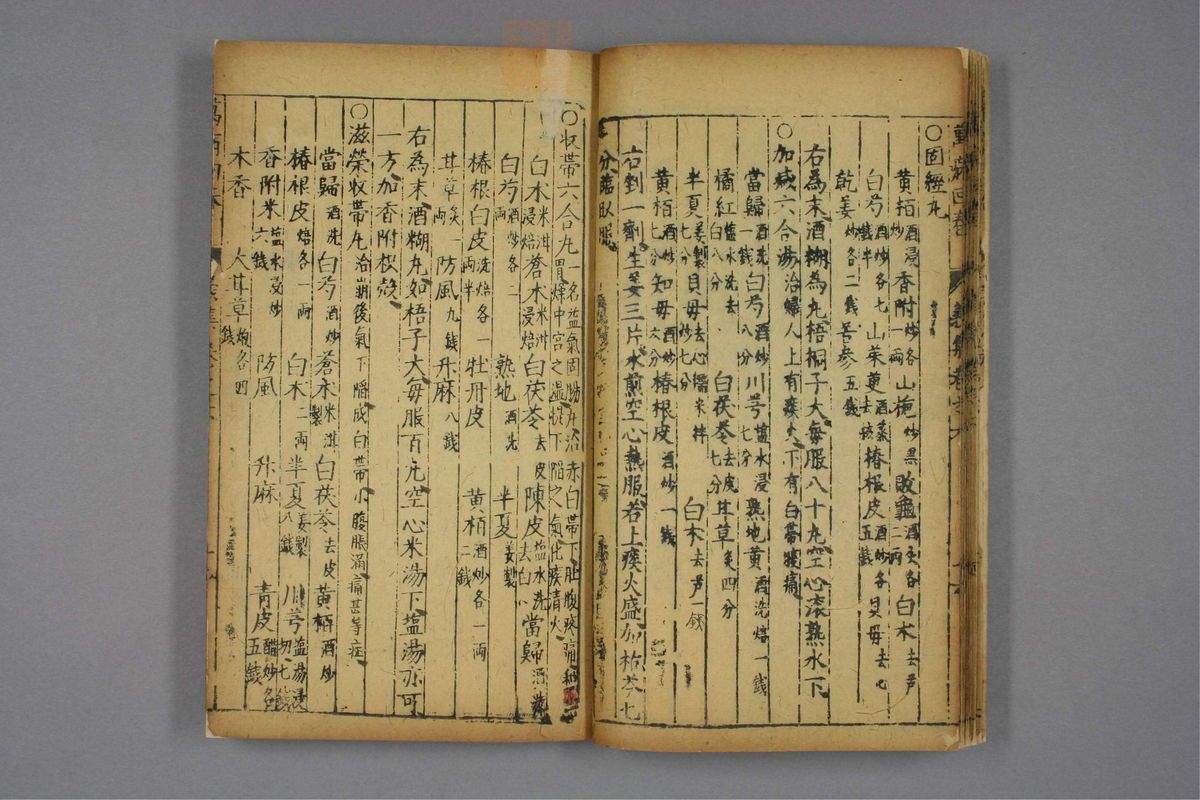 ○固經丸
黃栢酒浸炒 香附炒各一兩 山梔炒黒 敗龜酒炙各二兩 白朮去芦
白芍酒炒各七錢半 山茱萸酒蒸去核 椿根皮酒炒各五錢 貝母去心
乾姜炒各二錢 苦參五錢
右為末酒糊為丸梧桐子大每服八十丸空心滾熟水下
○加減六合湯治婦人上有痰火下有白帶腹痛
當歸酒洗一錢 白芍酒炒八分 川芎塩水浸七分 熟地黃酒洗焙一錢
橘紅塩水洗去白八分 白茯苓去皮七分 甘草炙四分
半夏姜製七分 貝母去心糯米拌炒七分 白朮去芦一錢
黃栢酒炒七分 知母酒炒六分 椿根皮酒炒一錢
右剉一劑生姜三片水煎空心熱服若上痰火盛加枯芩七
分臨臥服
○収帶六合丸一名益氣固腸丸治赤白帶下肚腹疼痛
燥中宮之濕提下陷之氣化痰清火
白朮米泔浸焙 蒼朮米泔浸焙 白茯苓去皮 陳皮塩水洗去白 當歸酒洗
白芍酒炒各二兩 熟地酒洗 半夏姜製
椿根白皮洗焙各一兩半 牡丹皮 黃栢酒炒各一兩二錢
甘草炙一兩 防風九錢 升麻八錢
右為末酒糊丸如梧子大每服百丸空心米湯下塩湯亦可
一方加香附枳殼
○滋榮收帶丸治崩後氣下陷成白帶小腹脹滿痛甚等症
當歸酒洗 白芍酒炒 蒼朮米泔製 白茯苓去皮 黃栢酒炒
椿根皮焙各一兩 白朮二兩 半夏姜製八錢 川芎塩湯浸切七錢
香附米塩水浸炒六錢 大甘草炙各四錢 防風 升麻 青皮醋炒各五錢
木香